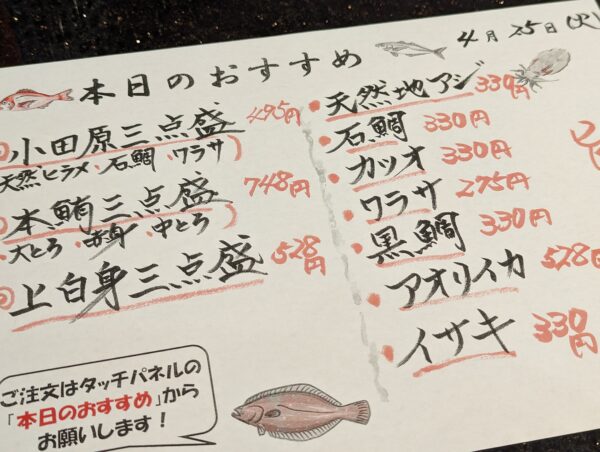 本日のおすすめ
4月25日(火)
小田原三点盛 495円
天然ヒラメ、石鯛、ワラサ)
本鮪三点盛 748円
・大とろ・赤身・中とろ)
上白身三点盛 528円
・天然地アジ 330円
・石鯛 330円
・カツオ 330円
・ワラサ 275円
・黒鯛 330円
・アオリイカ 528円
・イサキ 330円
ご注文はタッチパネルの
「本日のおすすめ」から
お願いします!